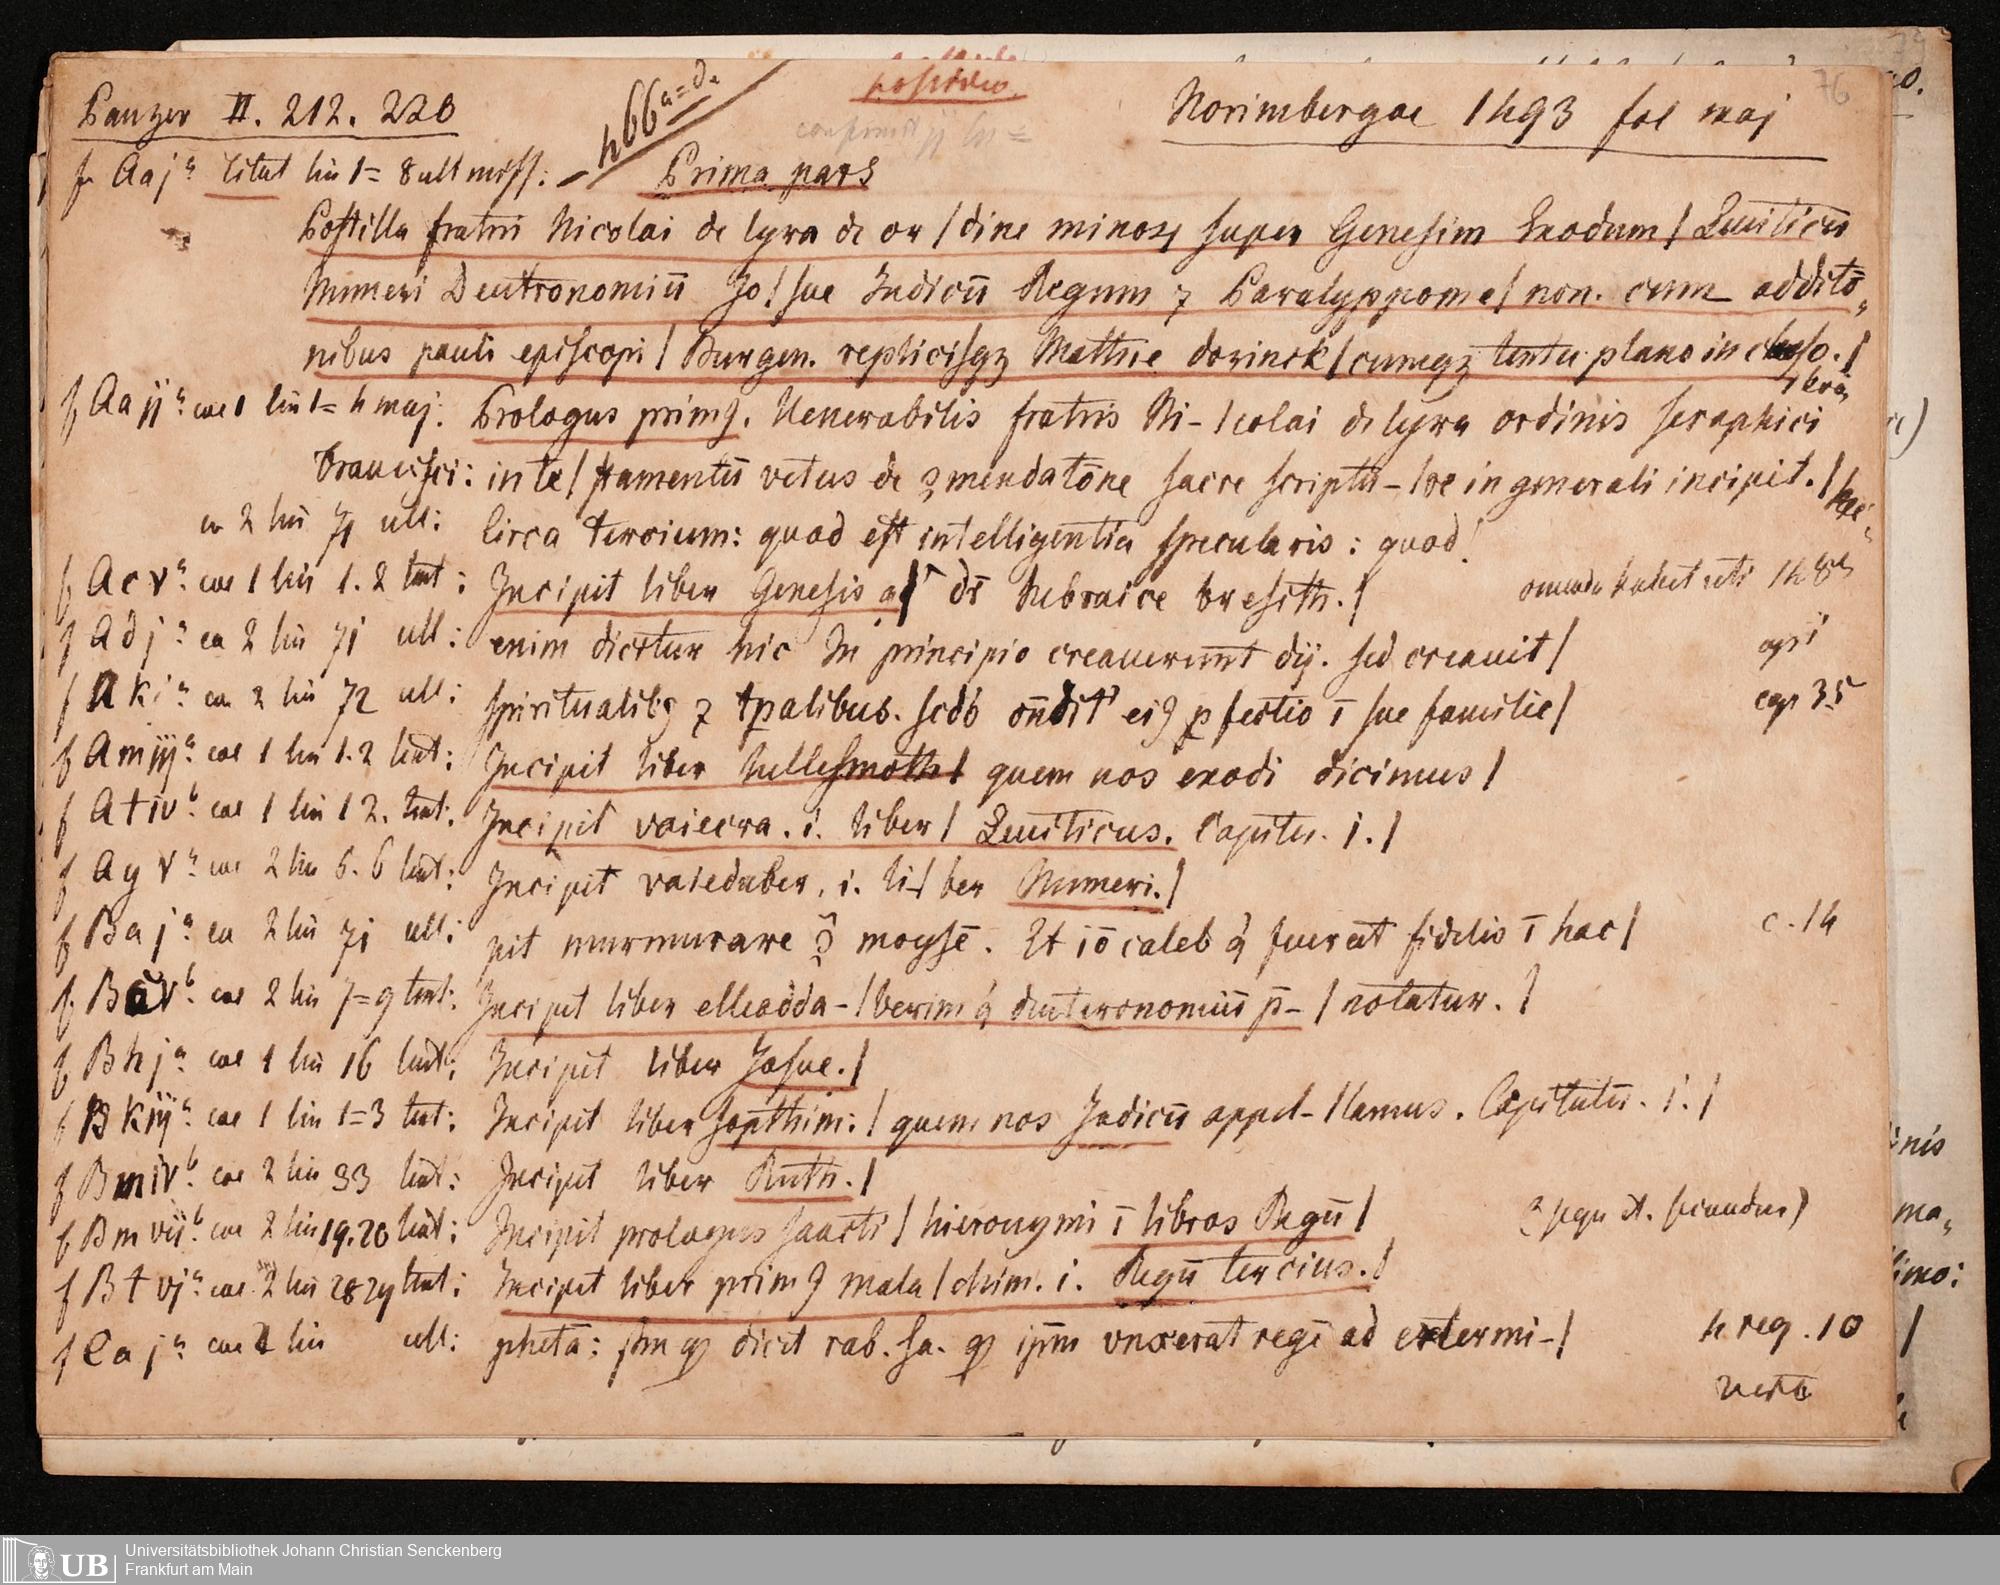 Panzer II. 212. 228
466 a=d.
Norimbergae 1493 fol maj
76
f Aa j a titul lin 1=8 ult miss:
Prima pars
Postilla fratris Nicolai de lyra de or / dine minorꝝ super Genesim Exodum / Leuiticū
Numeri Deutronomiū Jo / sue Judicū Regum ⁊ Paralyppome / non. cum additō„
nibus pauli episcopi / Burgen. replicisqꝫ Mathie dorinck / cumqꝫ textu plano in clauso. /
f Aa ij a col 1 lin 1=4 maj: Prologus primꝰ. Uenerabilis fratris Ni- / colai de lyra ordinis seraphici
Francisci: in te / stamentū vetus de ꝯmendatōne sacre scriptu- / re in generali incipit. /
co 2 lin 71 ult: Circa tercium: quod est intelligentia specularis: quod /
f Ac v a col 1 lin 1. 2 text: Incipit liber Genesis q / dr̄ hebraice bresith. /
f Ad j a co 2 lin 71 ult: enim dicitur hic In principio creauerunt dij. sed creauit /
cap i
f A k i a co 2 lin 72 ult: spiritualibꝰ ⁊ tꝑalibus. scd'o on̄dit' eiꝰ ꝑfectio ī sue familie /
cap 35
f A m iij a col 1 lin 1. 2 text: Incipit liber hellesmoth / quem nos exodi dicimus /
f A t iv b col 1 lin 1 2. text: Incipit vaiecra. i. liber / Leuiticus. Capitu. i. /
f A y v a col 2 lin 5. 6 text: Incipit vaiedaber. i. li- / ber Numeri. /
f Ba j a co 2 lin 71 ult: pit murmurare ꝯ̄ moysē. Et iō caleb q' fuerat fidelis ī hac /
c. 14
f B c v b col 2 lin 7=9 text: Incipit liber elleadda- / berim q' deuteronomiū p̄- / notatur. /
f B h j a col 1 lin 16 text: Incipit liber Josue. /
f B k iij a col 1 lin 1=3 text: Incipit liber sopthim: / quem nos Judicū appel- / lamus. Capitulū. i. /
f B m iv b col 2 lin 33 text: Incipit liber Ruth. /
f B m vij b col 2 lin 19. 20 text: Incipit prologus sancti / hieronymi ī libros Regū /
f B t vj a col 2 lin 28 29 text: Incipit liber primꝰ mala / chim. i. Regū tercius. /
f C a j a col 2 lin ult: phetā: dicit rab. sa. ip̄m vnxerat regē ad extermi- /
4 reg. 10
verte
UB Universitätsbibliothek Johann Christian Senckenberg
Frankfurt am Main